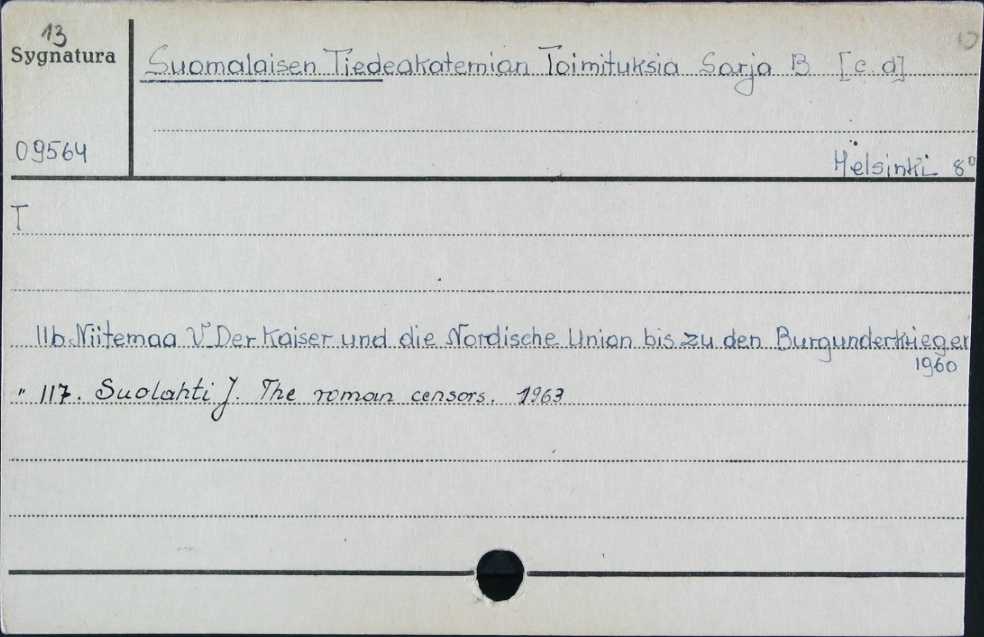 13
Sygnatura
Suomalaisen Tiedeakatemian Toimituksia Sarja B [c.d]
09564
Helsinki 8°
T
116. Niitemaa V. Der Kaiser und die Nordische Union bis zu den Burgunderkriegen
1960
" 117. Suolahti J. The roman censors. 1963